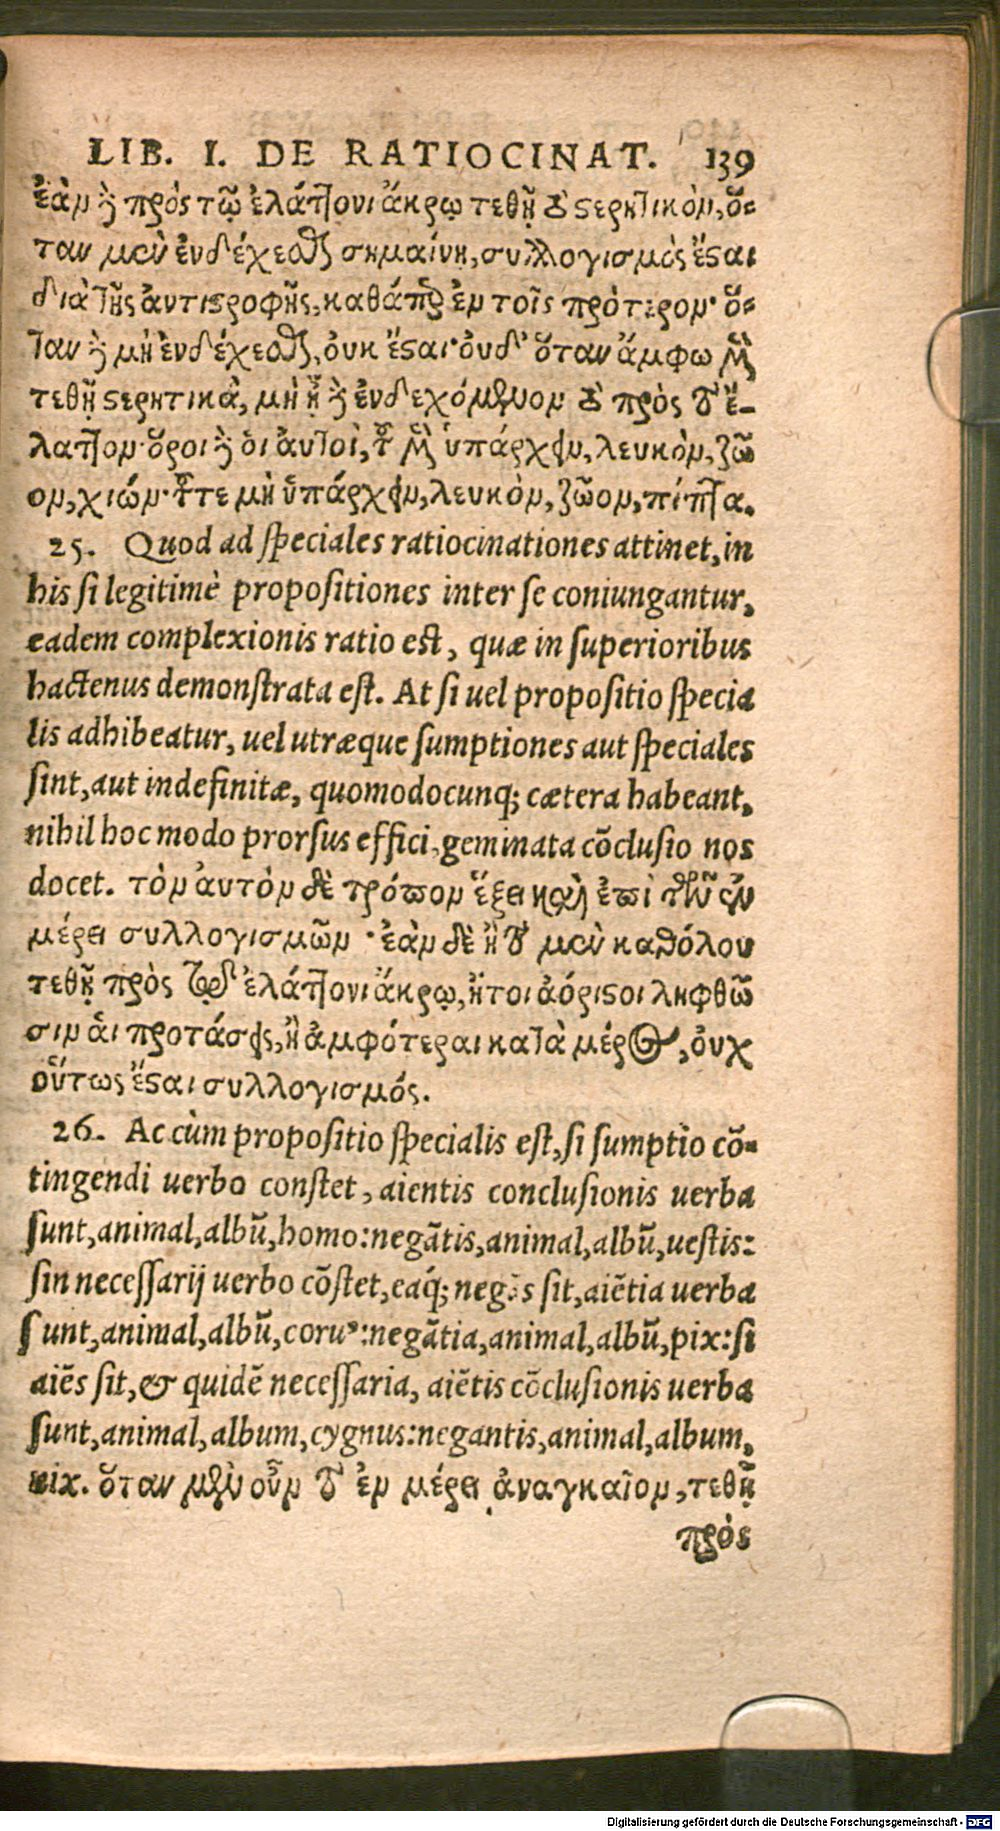 LIB. I. DE RATIOCINAT. 139
ἐὰν δὲ πρὸς τῷ ἐλάττονι ἄκρῳ τεθῇ τὸ στερητικὸν, ὅ-
ταν μὲν ἐνδέχεσθαι σημαίνῃ, συλλογισμὸς ἔσαι
διὰ τῆς ἀντιστροφῆς, καθάπερ ἐν τοῖς πρότερον· ὅ-
ταν δὲ μὴ ἐνδέχεσθαι, οὐκ ἔσαι· οὐδ' ὅταν ἄμφω μὲν
τεθῇ στερητικὰ, μὴ ᾖ δὲ ἐνδεχόμενον τὸ πρὸς τὸ ἔ-
λαττον· ὅροι δὲ ὁι ἀυτοὶ, τοῦ μὲν ὑπάρχειν, λευκὸν, ζῶ
ον, χιών· τοῦτε μὴ ὑπάρχειν, λευκὸν, ζῶον, πίττα.
25. Quod ad speciales ratiocinationes attinet, in
his si legitimè propositiones inter se coniungantur,
eadem complexionis ratio est, quæ in superioribus
hactenus demonstrata est. At si uel propositio specia
lis adhibeatur, uel utræque sumptiones aut speciales
sint, aut indefinitæ, quomodocunq; cætera habeant,
nihil hoc modo prorsus effici, geminata cōclusio nos
docet. τὸν ἀυτὸν δὲ τρόπον ἕξει καὶ ἐπὶ τῶν ἐν
μέρει συλλογισμῶν · ἐὰν δὲ ἢ τὸ μὲν καθόλου
τεθῇ πρὸς τῷ ἐλάττονι ἄκρῳ, ἤτοι ἀόριστοι ληφθῶ
σιν ἁι προτάσεις, ἢ ἀμφότεραι κατὰ μέρος, οὐχ
οὕτως ἔσαι συλλογισμός.
26. Ac cùm propositio specialis est, si sumptio cō-
tingendi uerbo constet, aientis conclusionis uerba
sunt, animal, albū, homo: negātis, animal, albū, uestis:
sin necessarij uerbo cōstet, eaq; negās sit, aiētia uerba
sunt, animal, albū, coruꝰ: negātia, animal, albū, pix: si
aiēs sit, & quidē necessaria, aiētis cōclusionis uerba
sunt, animal, album, cygnus: negantis, animal, album,
nix. ὅταν μὲν οὖν τὸ ἐν μέρει ἀναγκαῖον, τεθῇ
πρὸς
Digitalisierung gefördert durch die Deutsche Forschungsgemeinschaft - DFG